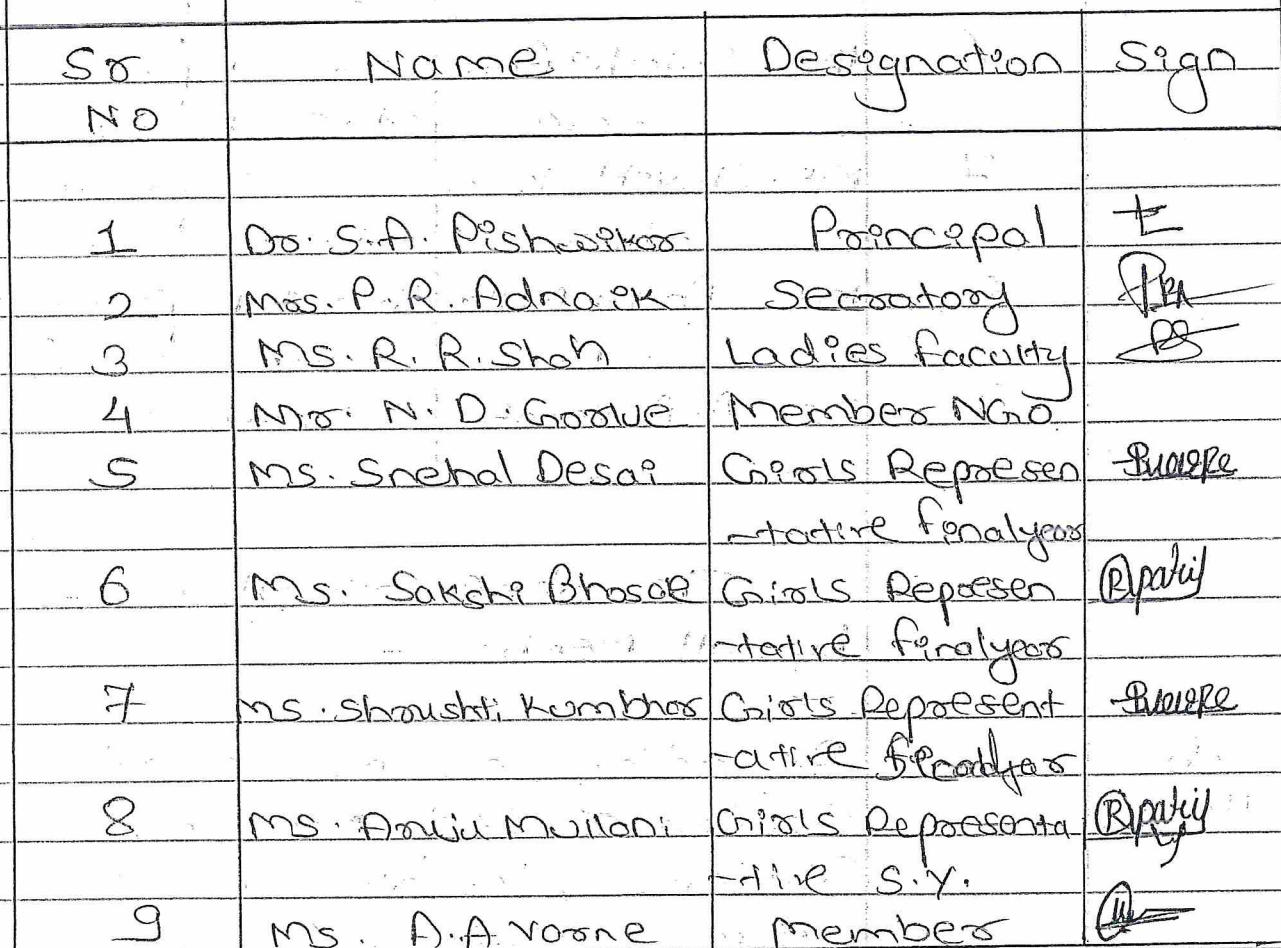 Sr Name Designation Sign
No
1 Dr. S.A. Pishwikar Principal
2 Mrs. P. R. Adnaik Secratory
3 Ms. R. R. Shah Ladies faculty
4 Mr. N. D. Gorlue Member NGO
5 Ms. Snehal Desai Girls Represen
-tative finalyear
6 Ms. Sakshi Bhosale Girls Represen Rpatil
-tative finalyear
7 Ms. Shrushti Kumbhar Girls Represent
-ative
8 Ms. Anuja Mullani Girls Representa Rpatil
-tive S.Y.
9 Ms. A.A Varne Member